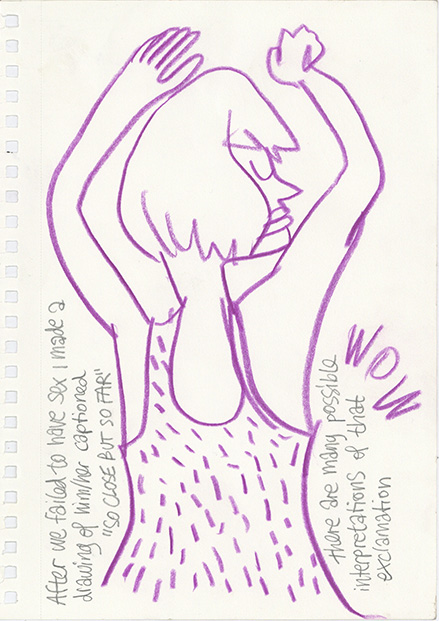 After we failed to have sex I made a
drawing of him/her captioned
"SO CLOSE BUT SO FAR"
WOW
there are many possible
interpretations of that
exclamation